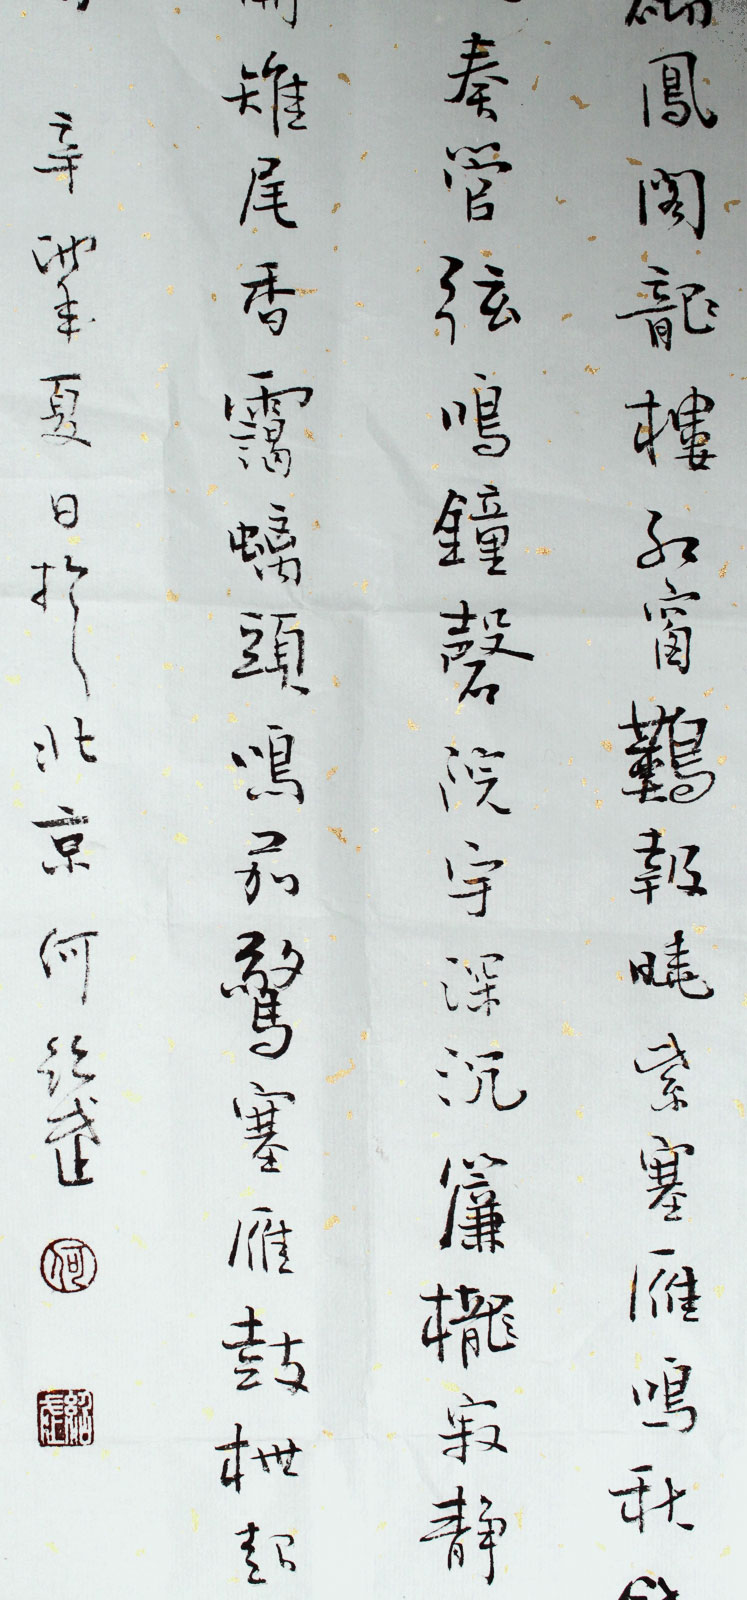 鳳閣龍樓紅窗鸛報曉紫塞雁鳴秋
奏管弦鳴鐘磬院宇深沉簾櫳寂靜
雉尾香靄螭頭鳴笳驚塞雁鼓枻起
辛夏日於北京何
何